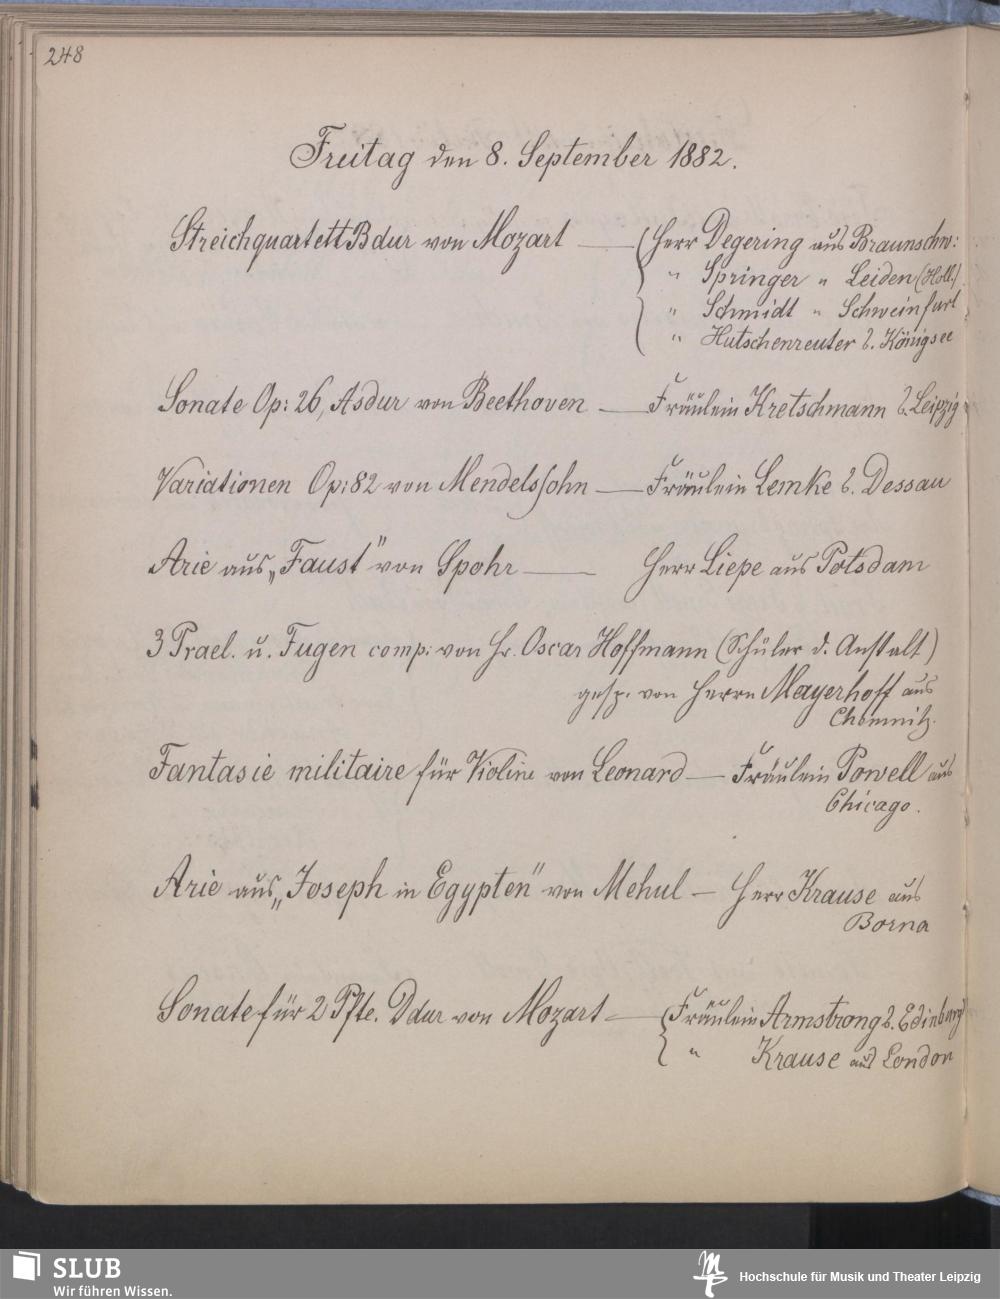 248
Freitag den 8. September 1882.
Streichquartett Bdur von Mozart — Herr Degering aus Braunschw:
" Springer " Leiden (Holl.)
" Schmidt " Schweinfurt
" Hutschenreuter a. Königsee
Sonate Op: 26, Asdur von Beethoven — Fräulein Kretschmann a. Leipzig
Variationen Op: 82 von Mendelssohn — Fräulein Lemke a. Dessau
Arie aus „Faust" von Spohr — Herr Liepe aus Potsdam
3 Prael. u. Fugen comp: von Hr. Oscar Hoffmann (Schüler d. Anstalt)
gesp. von Herrn Mayerhoff aus
Chemnitz.
Fantasie militaire für Violine von Leonard — Fräulein Powell aus
Chicago.
Arie aus „Joseph in Egypten" von Mehul — Herr Krause aus
Borna
Sonate für 2 Pfte. Ddur von Mozart — Fräulein Armstrong a. Edinburg
" Krause aus London
SLUB
Wir führen Wissen.
Hochschule für Musik und Theater Leipzig